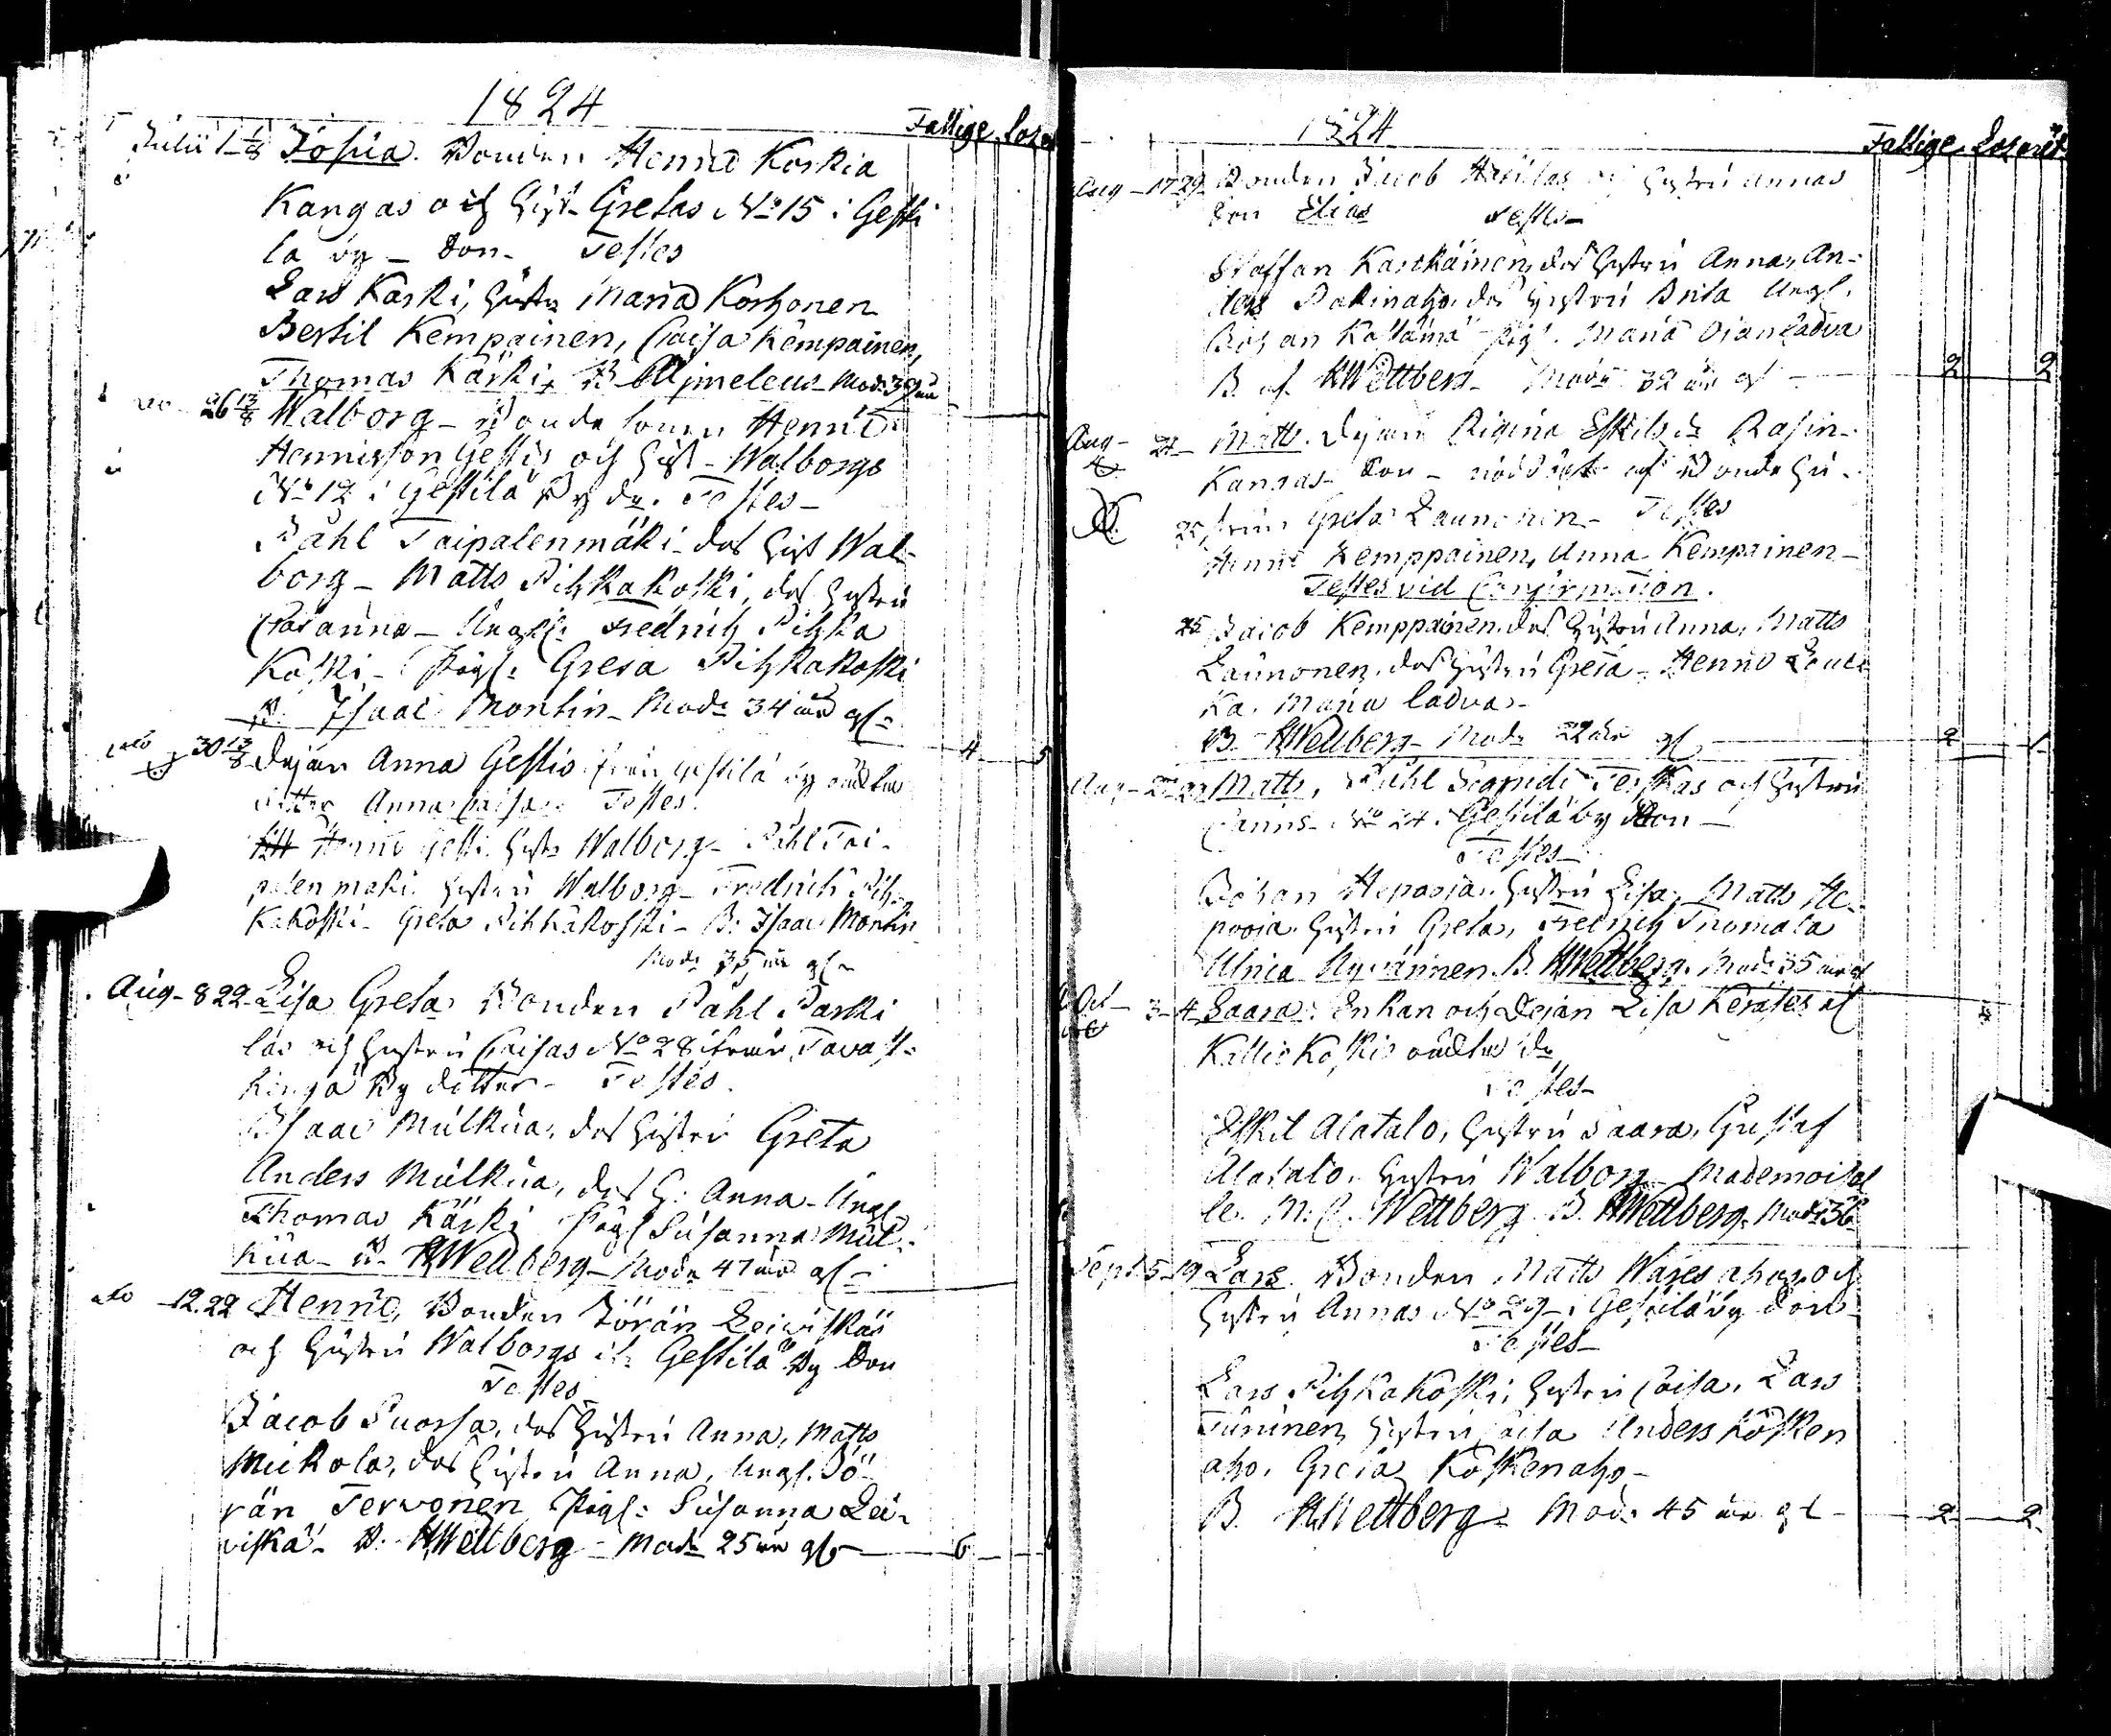 1824
Fattige Lazar
Julii 1 1/8 Josua. Bonden Henric Koskia
Kangas och Hust. Gretas No 15 i Gesti
la by - son - Testes
Lars Karki, Hustr Maria Korhonen
Bertil Kempainen, Caisa Kempainen,
Thomas Kärki, B Ajmeleus - Modr 39 år
do 26 13/8 Walborg - Bonde sonen Henric
Hennisson Gestis och Hust - Walborgs
No 12 i Gestilä By dr. Testes -
Påhl Taipalenmäki - des Hust Wal-
borg - Matts Pihkakoski, des Hustru
Carianna - Ungk: Fredrich Pihka
koski - Pigh: Greta Pihkakoski
B. Isaac Montin - Modr 34 år gl:
4 5
30 13/8 Dejan Anna Gestis från Gestilä by oäkta
dotter Anna Caisa. Testes.
Henric Gesti Hustr Walborg - Påhl Tai-
palenmäki Hustru Walborg - Fredrich Pih-
kakoski - Greta Pihkakoski - B: Isaac Montin
Modr 35 år gl
Aug - 8 22 - Lisa Greta Bonden Påhl Parki
las och Hustru Caisas No 28 ifrån Tavast-
kenga By dotter - Testes.
Isaac Mulkua, des Hustru Greta
Anders Mulkua, des H: Anna - Ungk
Thomas Kärki Pigh Susanna Mul-
kua - B. HWettberg - Modr 47 år gl -
do - 12. 22 Henric, Bonden Jöran Leiviskäs
och Hustru Walborgs i Gestilä By Son
Testes
Jacob Suorsa, des Hustru Anna, Matts
Mickola, des Hustru Anna, Ungk. Jö-
rän Tervonen Pigh: Susanna Lei-
viskä - B. HWettberg - Modr 25 år gl
6
1824
Fattige. Lazaret.
Aug - 17 29 Bonden Jacob Harilas och Hustru Annas
Son Elias Testes -
Staffan Karckäinen, des Hustru Anna, An-
ders Pakinaho des Hustru Brita Ungk.
Johan Kottämä Pigh. Maria Ojanladva
B. af HWettberg - Modr 32 år gl -
2 2
Aug - 21 - Matts. Dejan Regina Eskilsdr Rasin-
Kangas - Son - nöddöpt af Bonde Hu-
25 strun Greta Launonen - Testes
Henric Kemppainen, Anna Kempainen -
Testes vid Confirmation.
25 Jacob Kemppainen, des Hustru Anna, Matts
Launonen, des Hustru Greta - Henric Leut
ka, Maria ladva -
B. HWettberg - Modr 22 år gl
2 1
Aug - 29 Matts, Påhl Sigfrids Teskas och Hustru
Carins - No 24 i Gestilä by Son -
Testes -
Johan Heporja. Hustru Lisa, Matts He-
pooja. Hustru Greta, Fredrich Tuomala
Ulrica Hyvärinen B. HWettberg. Modr 35 år gl
Oct - 3 - 4 Saara: Enkan och Dejan Lisa Kerätes af
Kallio Koskis oäkta dr
Testes -
Eskil Alatalo, Hustru Saara, Gustaf
Alatalo. Hustru Walborg - Mademoisel
le. M. C. Wettberg B. HWettberg. Modr 36
Sept. 5 - 19 Lars. Bonden Matts Waresahos och
Hustru Annas No 29 - i Gestilä by Son -
Testes -
Lars Pihkakoski, Hustru Caisa, Lars
Turunen, Hustru Caisa Anders Kosken
aho. Greta Koskenaho -
B. HWettberg - Modr 45 år gl -
2 2